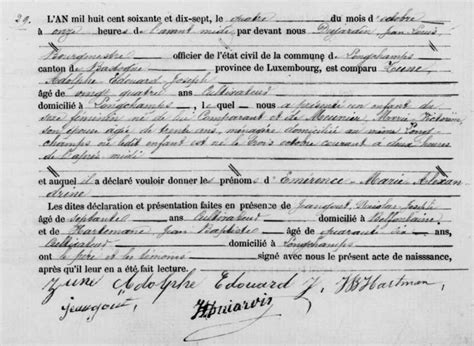 29. L'AN mil huit cent soixante et dix-sept, le quatre du mois d'octobre
à onze heures de l'avant midi par devant nous Dujardin Jean Louis
Bourgmestre officier de l'état civil de la commune de Longchamps
canton de Bastogne province de Luxembourg, est comparu Zune
Adolphe Edouard Joseph
âgé de quatre ans Cultivateur
domicilié à Longchamps, lequel nous a présenté un enfant du
sexe féminin né de lui Comparant et de Meunier Marie Victorine
son épouse âgée de trente ans, ménagère domiciliée au même Long-
champs le dit enfant est né le trois octobre courant à deux heures
de l'après midi
et auquel il a déclaré vouloir donner les prénoms d'Emérence Marie Alexan
drine
Les dites déclaration et présentation faites en présence de Joseph
âgé de septante ans Cultivateur domicilié à
et de Hartemane Jean Baptiste âgé de quarante six ans,
Cultivateur domicilié à Longchamps
ont le père et les témoins signé avec nous le présent acte de naissance,
après qu'il leur en a été fait lecture.
Zune Adolphe Edouard J. JB Hartman